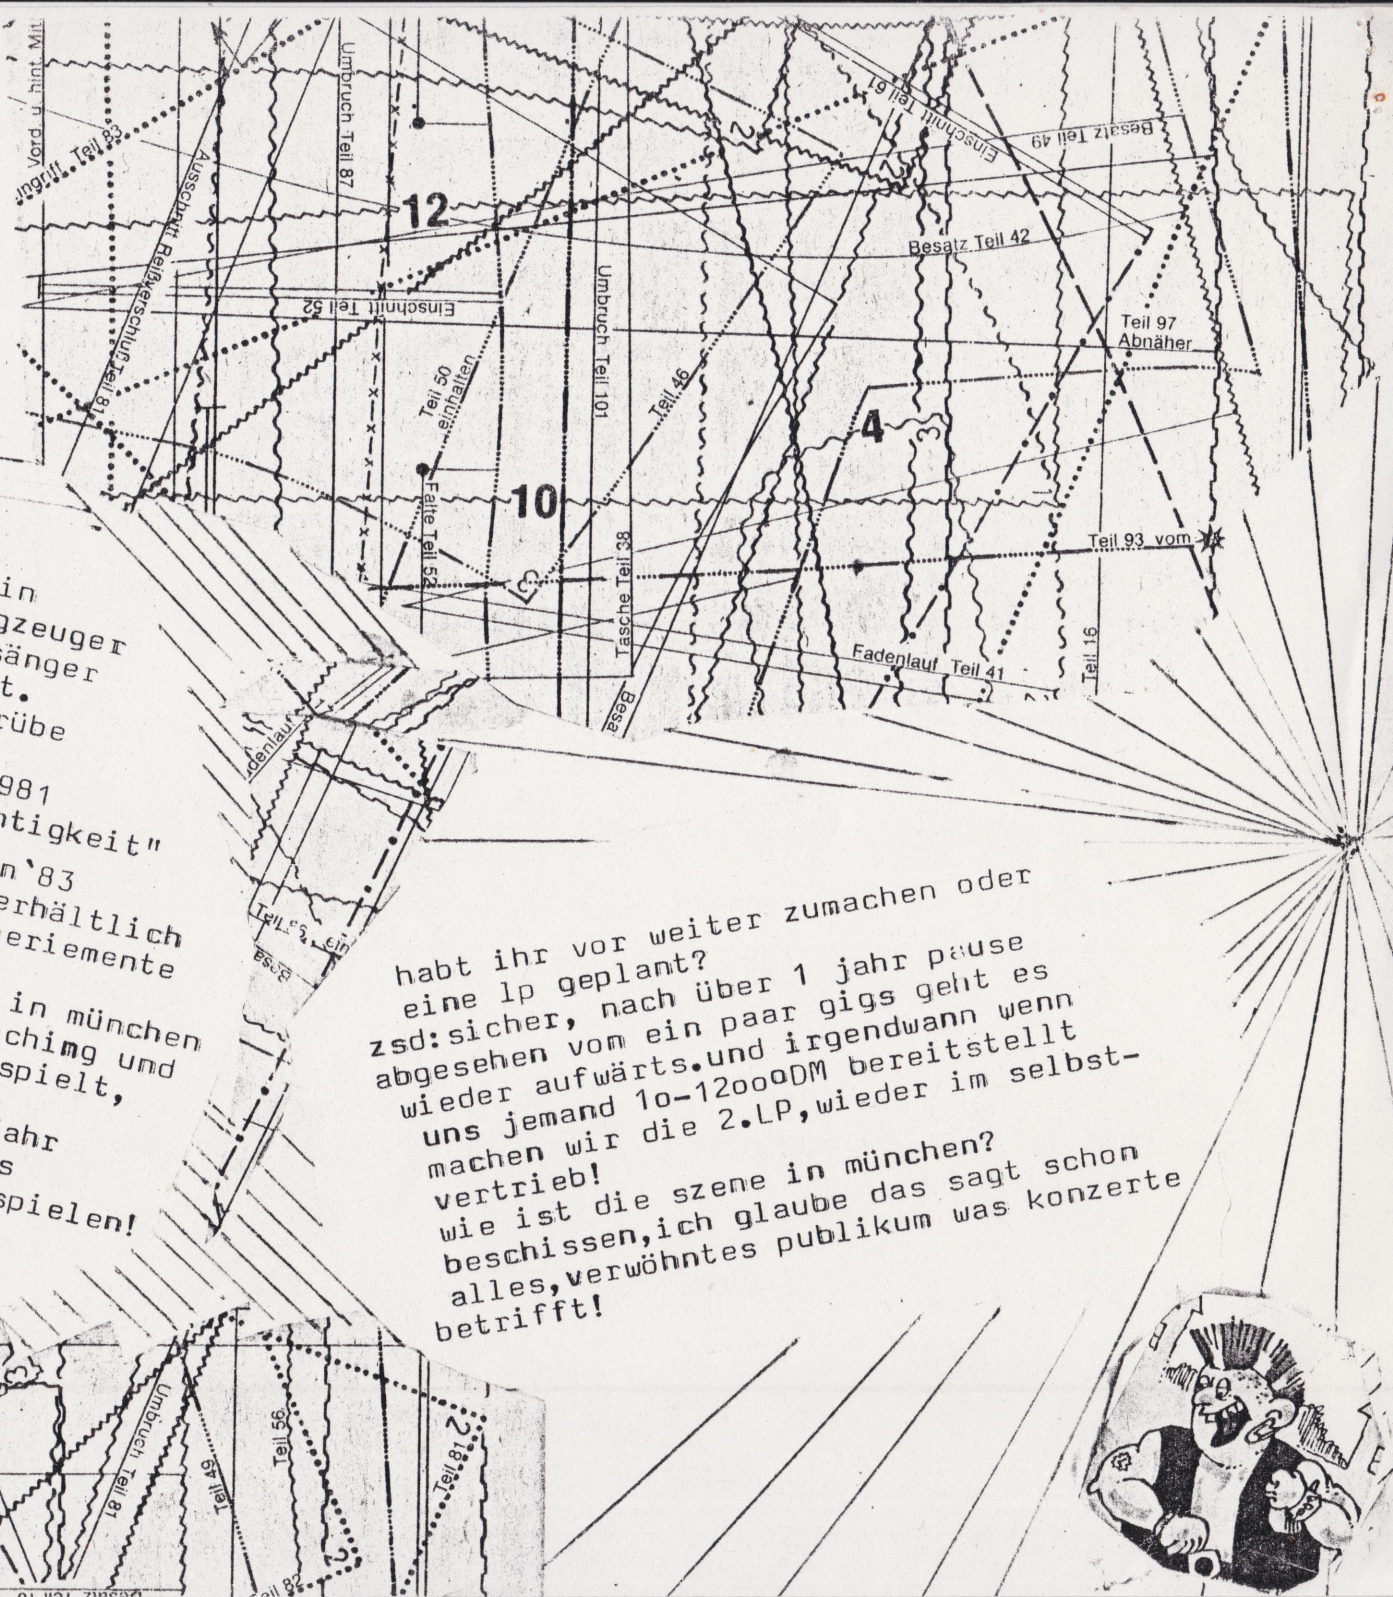 Vord. u. hint. Mit
Teil 83
Ausschnitt Reißverschluß Teil 81
Umbruch Teil 87
12
Einschnitt Teil 52
Teil 50
einhalten
Falte Teil 52
10
3
Umbruch Teil 101
Tasche Teil 38
Teil 46
2
2
Einschnitt Teil 61
Besatz Teil 49
Besatz Teil 42
Teil 97
Abnäher
4
3
Teil 93 vom
Fadenlauf Teil 41
Teil 16
Besa
in
gzeuger
sänger
t.
rübe
981
htigkeit"
n`83
erhältlich
eriemente
in münchen
ching und
spielt,
ahr
s
spielen!
denlauf
Besa
habt ihr vor weiter zumachen oder
eine lp geplant?
zsd:sicher, nach über 1 jahr pause
abgesehen von ein paar gigs geht es
wieder aufwärts.und irgendwann wenn
uns jemand 1o-12oooDM bereitstellt
machen wir die 2.LP,wieder im selbst-
vertrieb!
wie ist die szene in münchen?
beschissen,ich glaube das sagt schon
alles,verwöhntes publikum was konzerte
betrifft!
3
Umbruch Teil 81
Teil 49
Teil 56
Teil 81
2
2
eil 82